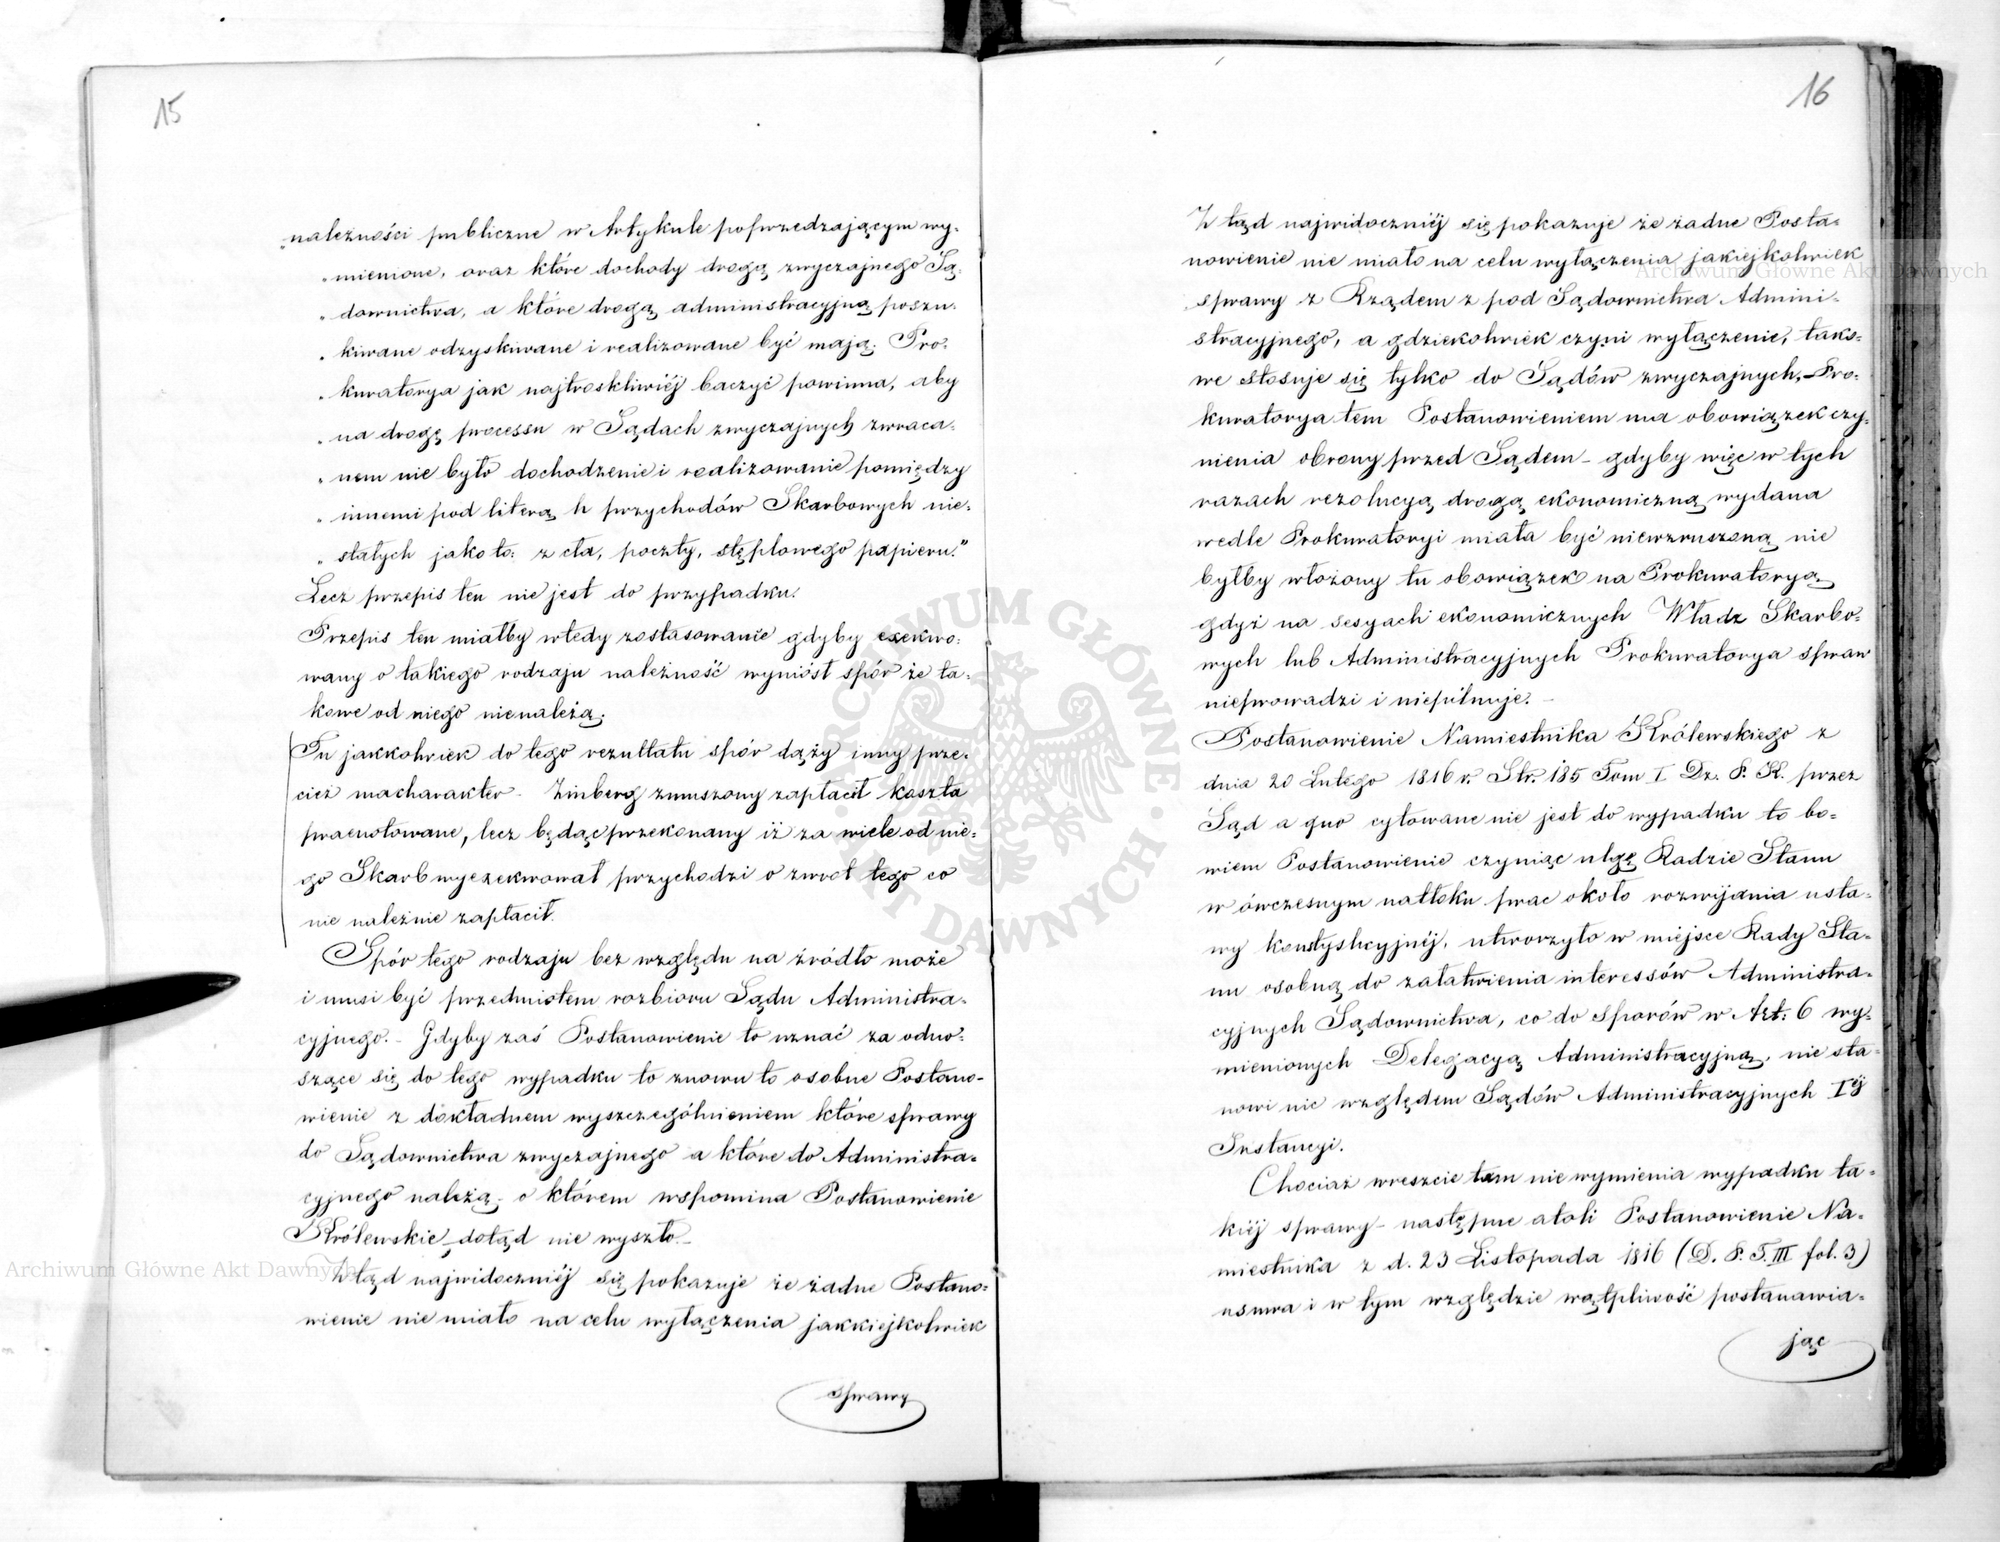 15
„należności publiczne w Artykule poprzedzającym wy-
„mienione, oraz które dochody drogą zwyczajnego Są-
„downictwa, a które drogą administracyjną poszu-
„kiwane odzyskiwane i realizowane być mają. Pro-
„kuratorya jak najtroskliwiéj baczyć powinna, aby
„na drogę processu w Sądach zwyczajnych zwraca-
„nem nie było dochodzenie i realizowanie pomiędzy
„innemi pod literą h przychodów Skarbowych nie-
„stałych jako to: z cła, poczty, stęplowego papieru."
Lecz przepis ten nie jest do przypadku.
Przepis ten miałby wtedy zastosowanie gdyby exekwo-
wany o takiego rodzaju należność wyniósł spór że ta-
kowe od niego nienależą.
Tu jakkolwiek do tego rezultatu spór dąży inny prze-
cież macharakter - Zinberg zmuszony zapłacił koszta
praenotowane, lecz będąc przekonany iż za wiele od nie-
go Skarb wyexekwował przychodzi o zwrot tego co
nie należnie zapłacił.
Spór tego rodzaju bez względu na źródło może
i musi być przedmiotem rozbioru Sądu Administra-
cyjnego. - Gdyby zaś Postanowienie to uznać za odno-
szące się do tego wypadku to znowu to osobne Postano-
wienie z dokładnem wyszczególnieniem które sprawy
do Sądownictwa zwyczajnego a które do Administra-
cyjnego należą - o którem wspomina Postanowienie
Królewskie - dotąd nie wyszło. -
Ztąd najwidoczniéj się pokazuje że żadne Postano-
wienie nie miało na celu wyłączenia jakkiejkolwiek
sprawy
16
Ztąd najwidoczniéj się pokazuje że żadne Posta-
nowienie nie miało na celu wyłączenia jakiejkolwiek
sprawy z Rządem z pod Sądownictwa Admini-
stracyjnego, a gdziekolwiek czyni wyłączenie, tako-
we stosuje się tylko do Sądów zwyczajnych, - Pro-
kuratorya tem Postanowieniem ma obowiązek czy-
nienia obrony przed Sądem - gdyby więc w tych
razach rezolucyą drogą ekonomiczną wydana
wedle Prokuratoryi miała być niewzruszoną nie
byłby włożony tu obowiązek na Prokuratoryą
gdyż na sesyach ekonomicznych Władz Skarbo-
wych lub Administracyjnych Prokuratorya spraw
nieprowadzi i niepilnuje. -
Postanowienie Namiestnika Królewskiego z
dnia 20 Lutego 1816 r. Str. 185 Tom I Dz. P. K. przez
Sąd a quo cytowane nie jest do wypadku to bo-
wiem Postanowienie czyniąc ulgę Radzie Stanu
w ówczesnym natłoku prac około rozwijania usta-
wy konstytucyjnéj, utworzyło w miejsce Rady Sta-
nu osobną do załatwienia interessów Administra-
cyjnych Sądownictwa, co do sporów w Art: 6 wy-
mienionych Delegacyą Administracyjną, nie sta-
nowi nic względem Sądów Administracyjnych Iéj
Instancyi.
Chociaż wreszcie tam nie wymienia wypadku ta-
kiéj sprawy - następne atoli Postanowienie Na-
miestnika z d. 23 Listopada 1816 (D. P. T. III fol. 3)
usuwa i w tym względzie wątpliwość postanawia-
jąc
ARCHIWUM GŁÓWNE · AKT DAWNYCH ·
Archiwum Główne Akt Dawnych
Archiwum Główne Akt Dawnych